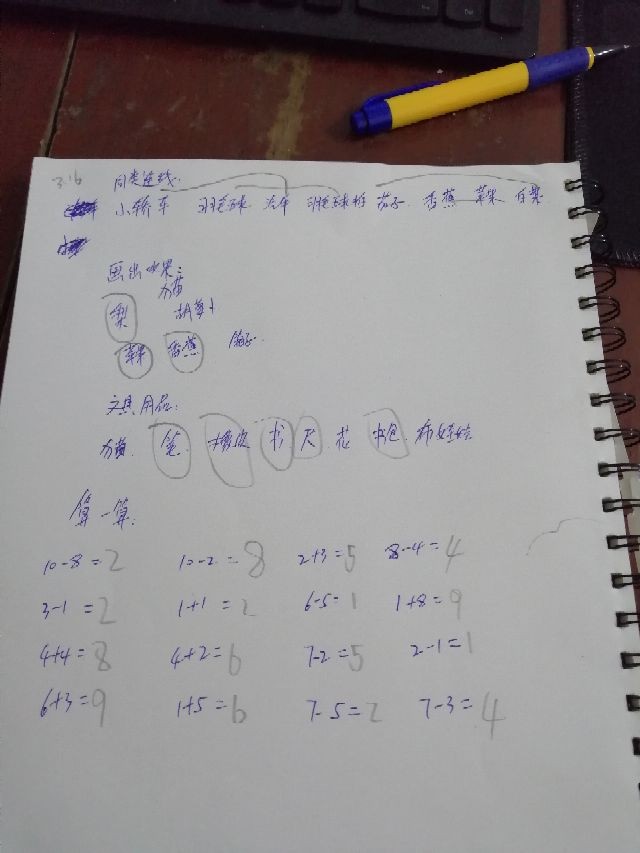 3.16 同类连线.
小轿车 羽毛球 汽车 羽毛球拍 茄子 香蕉 苹果 白菜
画出水果:
梨 方茴 胡萝卜
苹果 香蕉
文具用品:
笔 橡皮 书 尺 花 书包 布娃娃
算一算.
10-8=2 10-2=8 2+3=5 8-4=4
3-1=2 1+1=2 6-5=1 1+8=9
4+4=8 4+2=6 7-2=5 2-1=1
6+3=9 1+5=6 7-5=2 7-3=4